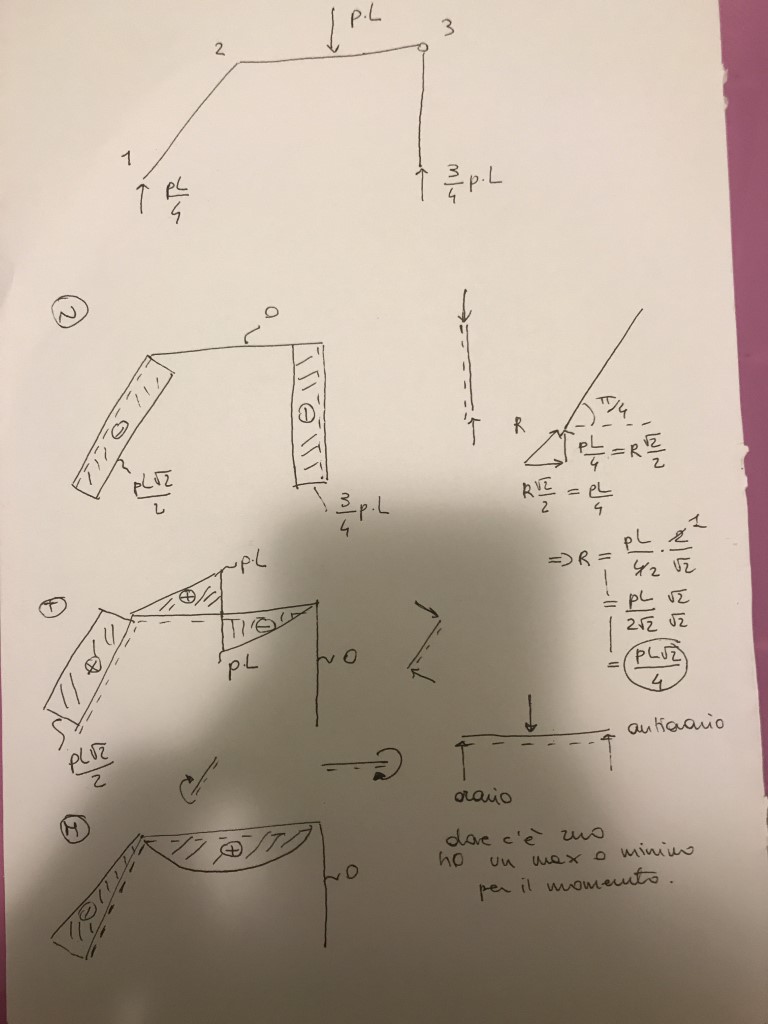 p.L
3
2
1
pL/4
3/4 p.L
N
0
π/4
R
pL/4 = R √2/2
⊖
⊖
pL√2/2
3/4 p.L
R√2/2 = pL/4
=> R = pL/4 2 · 2/√2 1
= pL/2√2 √2/√2
= pL√2/4
T
p.L
⊕
⊖
⊕
0
p.L
pL√2/2
antiorario
orario
M
⊕
0
⊖
dove c'è zero
ho un max o minimo
per il momento.